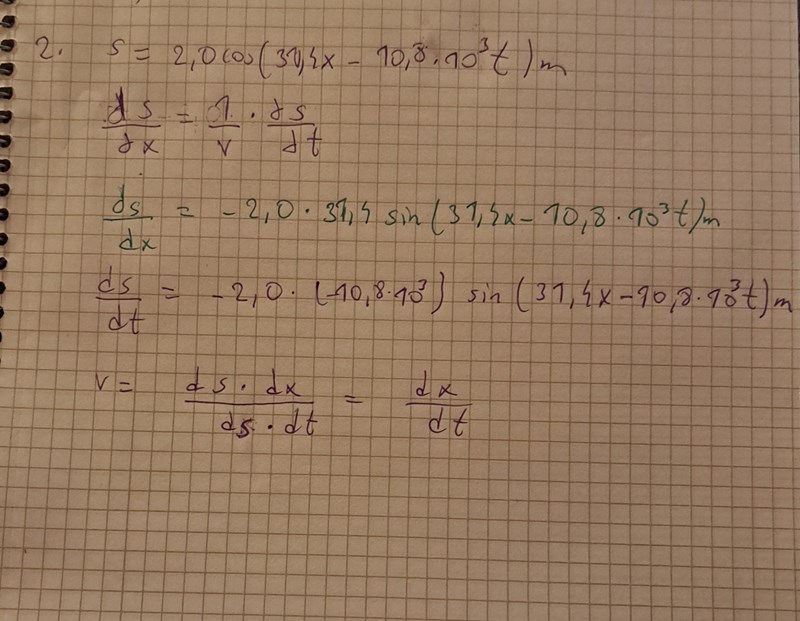 2. s = 2,0 cos(31,4x - 10,8·10³t)m
ds/dx = 1/v · ds/dt
ds/dx = -2,0·31,4 sin(31,4x - 10,8·10³t)m
ds/dt = -2,0·(-10,8·10³) sin(31,4x - 10,8·10³t)m
v = ds·dx/ds·dt = dx/dt